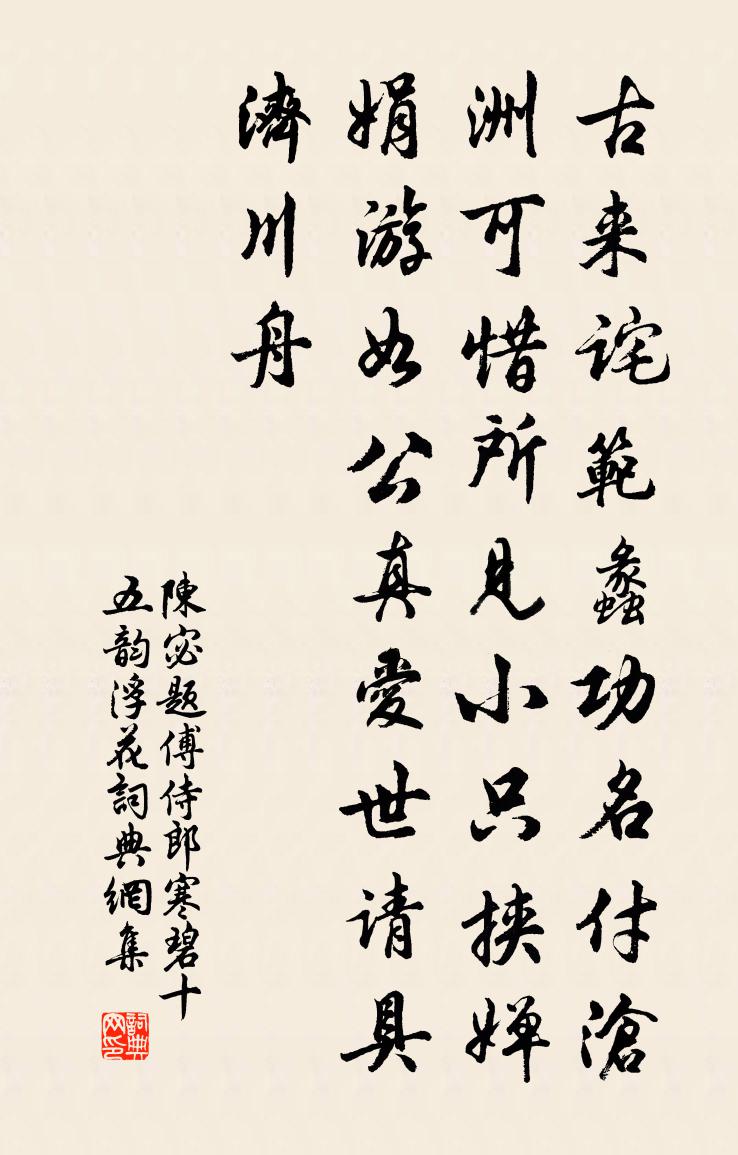 古来詫範蠡功名付滄
洲可惜所見小只挾婵
娟游如公真愛世请具
濟川舟
陳宓題傅侍郎寒碧十
五韵浮花詞典網集
詞典
网印